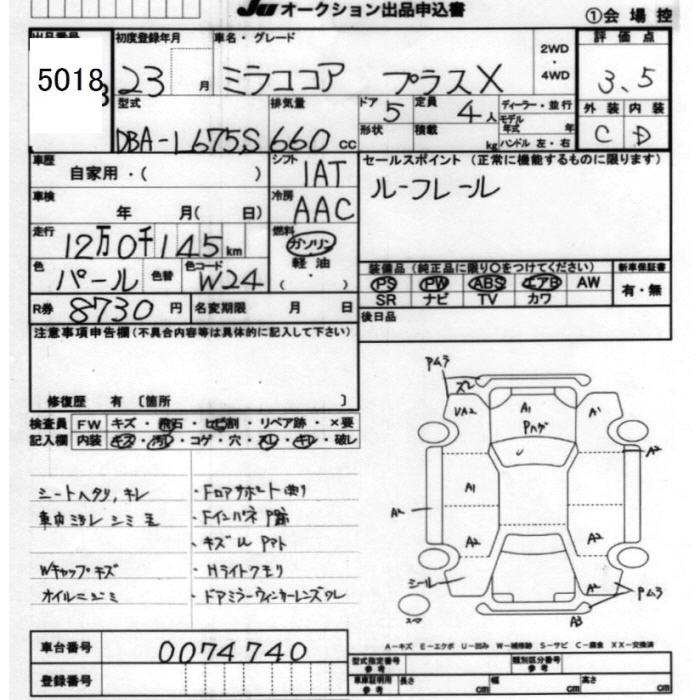 JU オークション出品申込書
①会場控
出品番号 5018
初度登録年月 23 月
車名・グレード ミラココア プラスX
2WD・4WD
評価点 3.5
型式 DBA-L675S
排気量 660 cc
ドア 5 定員 4人
形状 積載 kg
ディーラー・並行
モデル年式 年
ハンドル 左・右
外装 内装
C D
車歴 自家用・( )
シフト IAT
セールスポイント(正常に機能するものに限ります)
ルーフレール
車検 年 月( 日)
冷房 AAC
走行 12万0千145km
燃料 ガソリン・軽油・( )
色 パール 色替 色コード W24
装備品(純正品に限り○をつけてください)
新車保証書
PS PW ABS エアB AW
有・無
SR ナビ TV カワ
R券 8730円 名変期限 月 日
後日品
注意事項申告欄(不具合内容等は具体的に記入して下さい)
修復歴 有 〔箇所 〕
検査員記入欄
FW キズ・飛石・ヒビ割・リペア跡・×要
内装 キズ・汚レ・コゲ・穴・スレ・キレ・破レ
シートヘタリ,キレ
・Fロアサポート曲り
・Fインパネ P跡
・キズ U Pマト
Wキャップキズ
・Hライトクモリ
オイルニジミ
・ドアミラーウィンカーレンズワレ
Pムラ
ズレ
UA2
A1
Pハゲ
A1
U
A2
A1
A2
A2
A2
シール
A2
Pムラ
スマ
A3
A-キズ E-エクボ U-凹み W-補修跡 S-サビ C-腐食 XX-交換済
車台番号 0074740
型式指定番号参考
類別区分番号参考
登録番号
車庫証明用参考
長さ cm 幅 cm 高さ cm